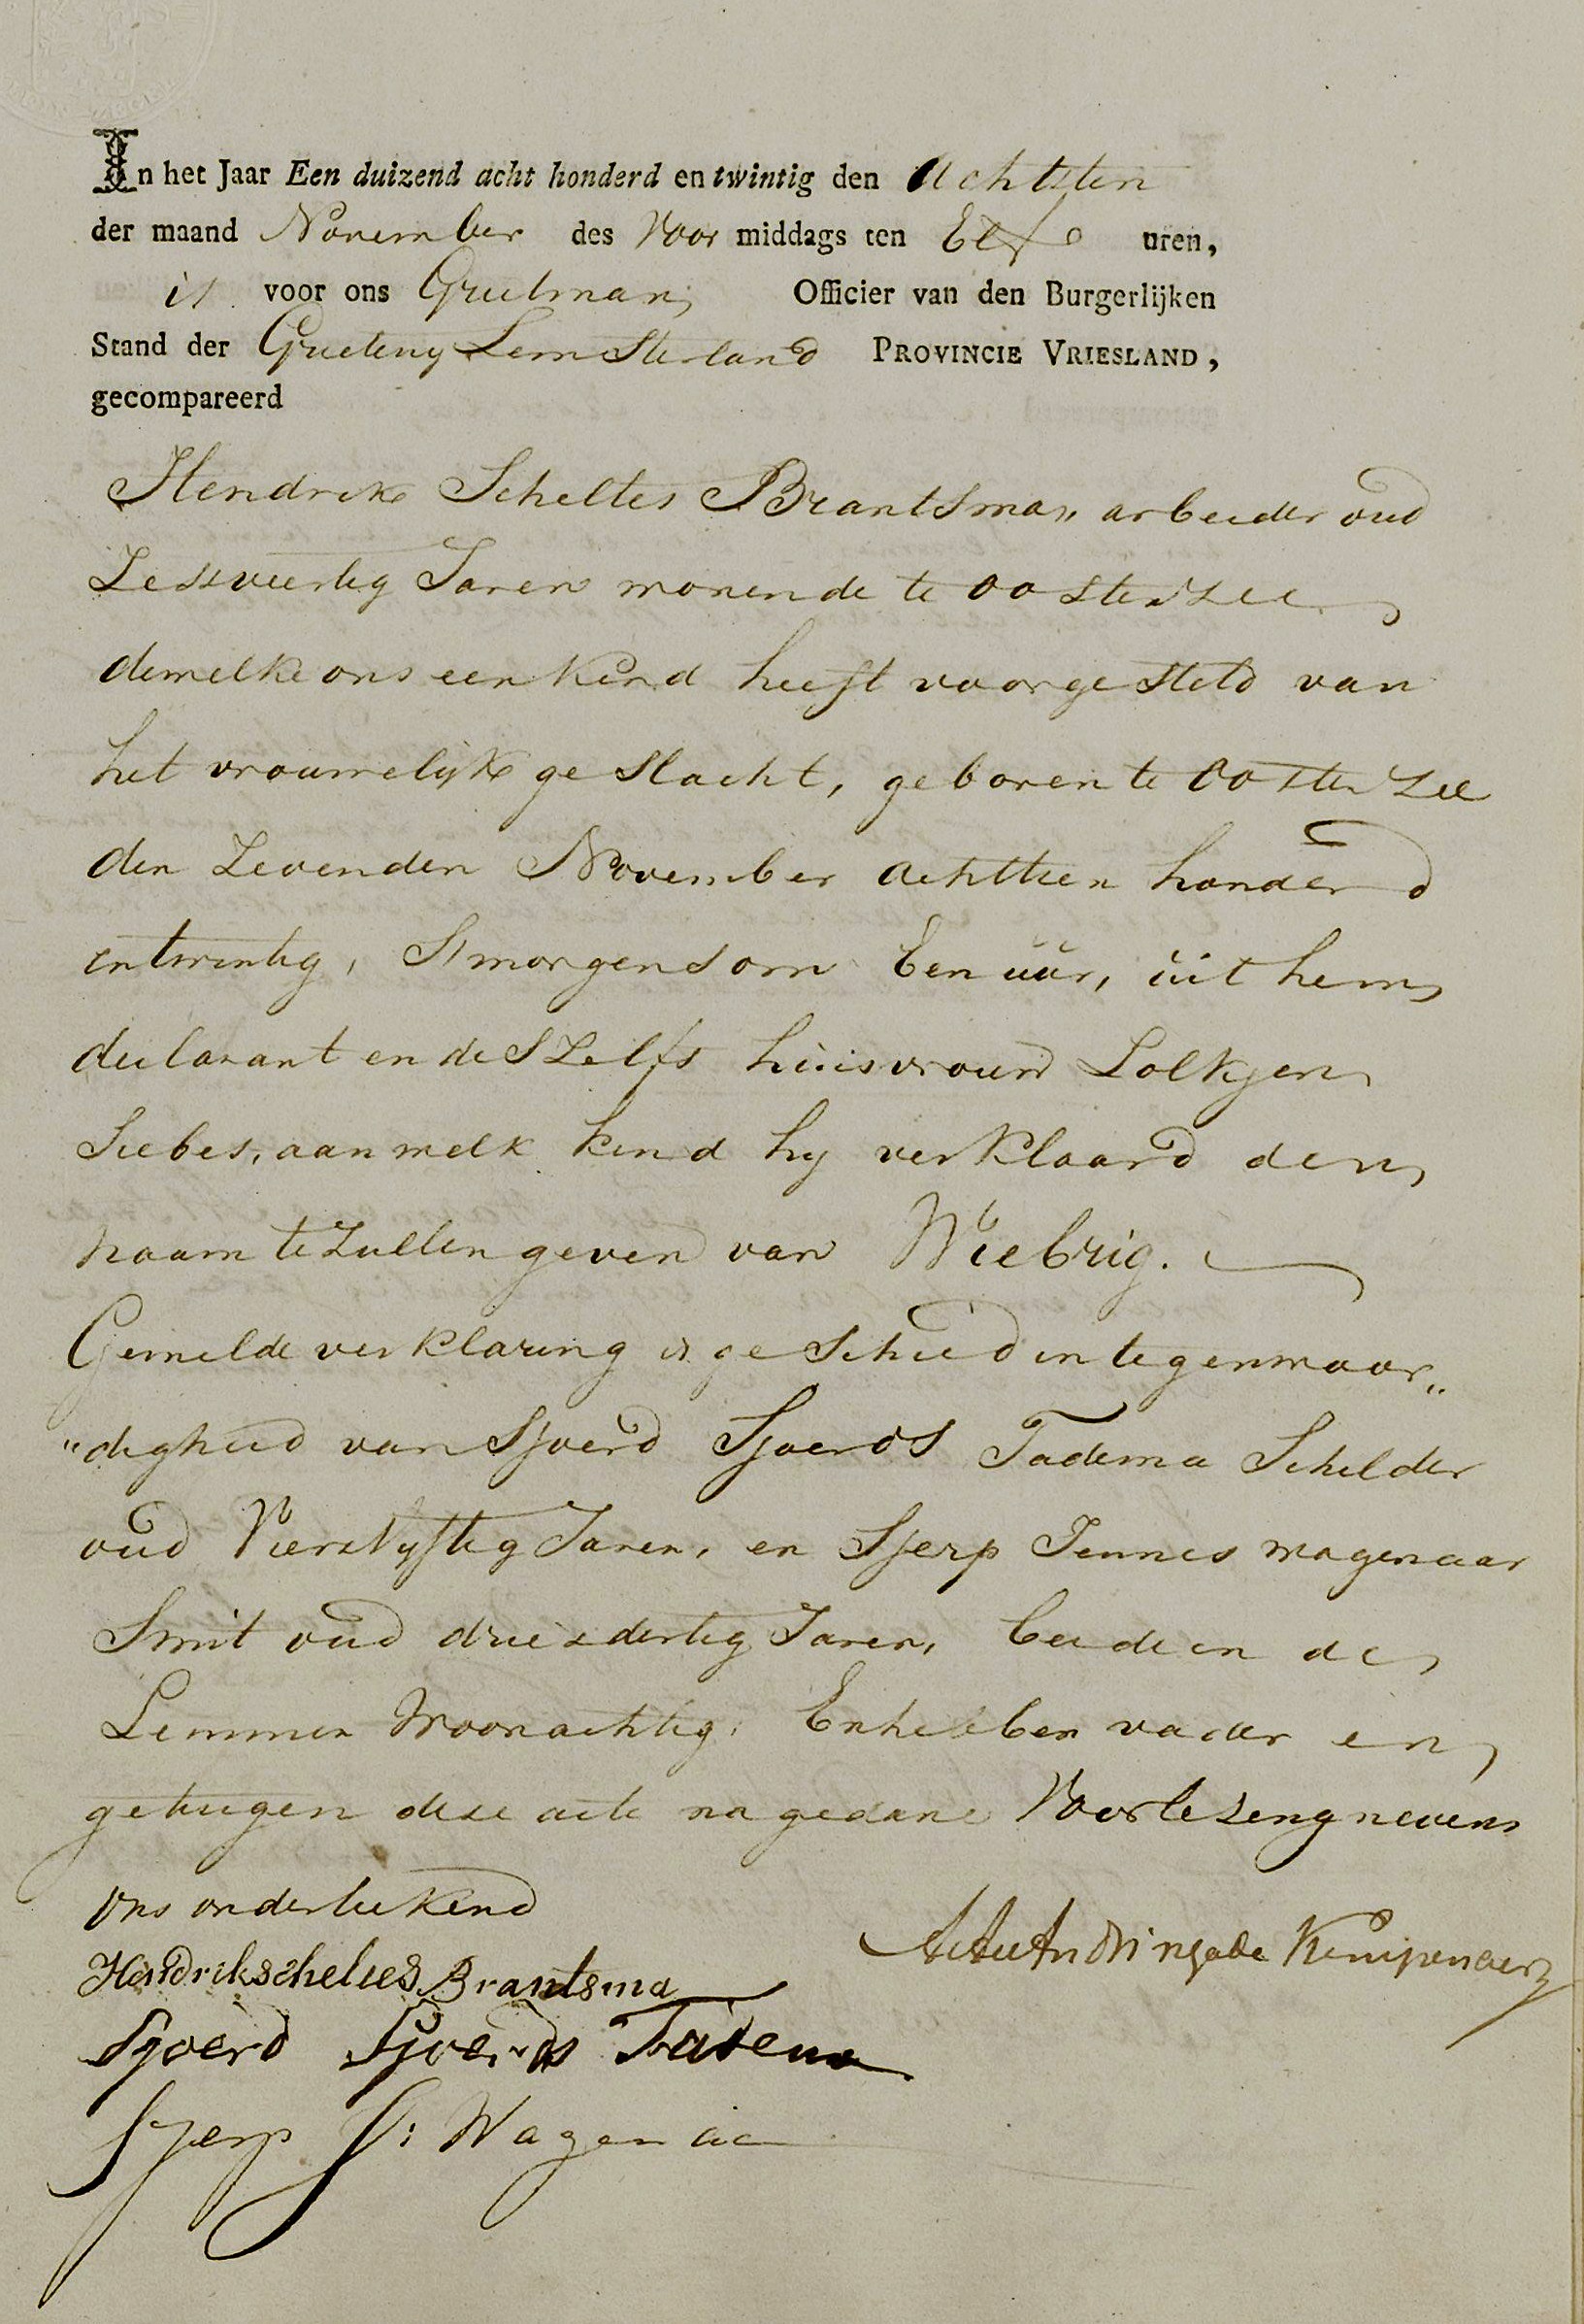 In het Jaar Een duizend acht honderd en twintig den Achtsten
der maand November des Voor middags ten Elf uren,
is voor ons Grietman, Officier van den Burgerlijken
Stand der Grieteny Lemsterland PROVINCIE VRIESLAND,
gecompareerd
Hendrik Scheltes Brantsma, arbeider oud
Zesxveertig Jaren wonende te Oosterzee
dewelke ons een kind heeft voorgesteld van
het vrouwelijk geslacht, geboren te Oosterzee
den Zevenden November achttien honderd
entwintig, Smorgens om Een uur, uit hem
declarant en deszelfs huisvrouw Lolkjen
Siebes, aan welk kind hy verklaard den
naam te zullen geven van Wiebrig.
Gemelde verklaring is geschied in tegenwoor„
„digheid van Sjoerd Sjoerds Tadema Schilder
oud VierxVyftig Jaren, en Sjerp Jennes wagenaar
Smit oud driexdertig Jaren, beide in de
Lemmer Woonachtig. En hebben vader en
getuigen deze acte na gedane Voorlezeng nevens
ons onderteekend
Hendrik scheltes Brantsma
Andringa de Kempenaer
Sjoerd Sjoerds Tadema
Sjerp J: Wagenaar